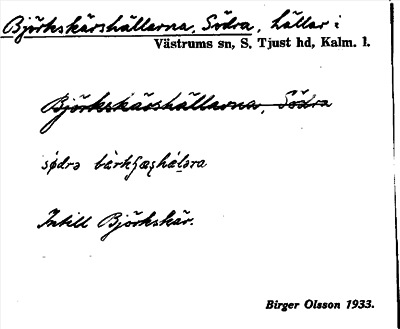 Björkskärshällarna, Södra, hällar i
Västrums sn, S. Tjust hd, Kalm. l.
Björkskärshällarna, Södra
södrə
Intill Björkskär.
Birger Olsson 1933.